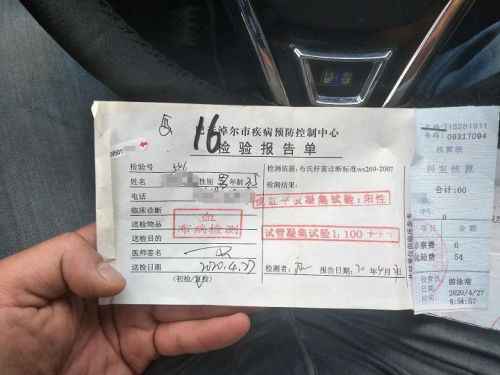 16
巴彦淖尔市疾病预防控制中心
检验报告单
检验号
姓名 性别 男 年龄 35
检测依据：布氏杆菌诊断标准ws269-2007
电话
检测结果：
临床诊断
虎红平板凝集试验：阳性
送检物品 血
疾病检测
送检目的
试管凝集试验1：100+++
医师签名
送检日期 2020.4.27
（初检/复检）
检测者： 报告日期：20年4月 日
15281911
09317094
收费额
科室核算
合计：60
诊察费 6
化验费 54
收费员
日期 2020/4/27
时间